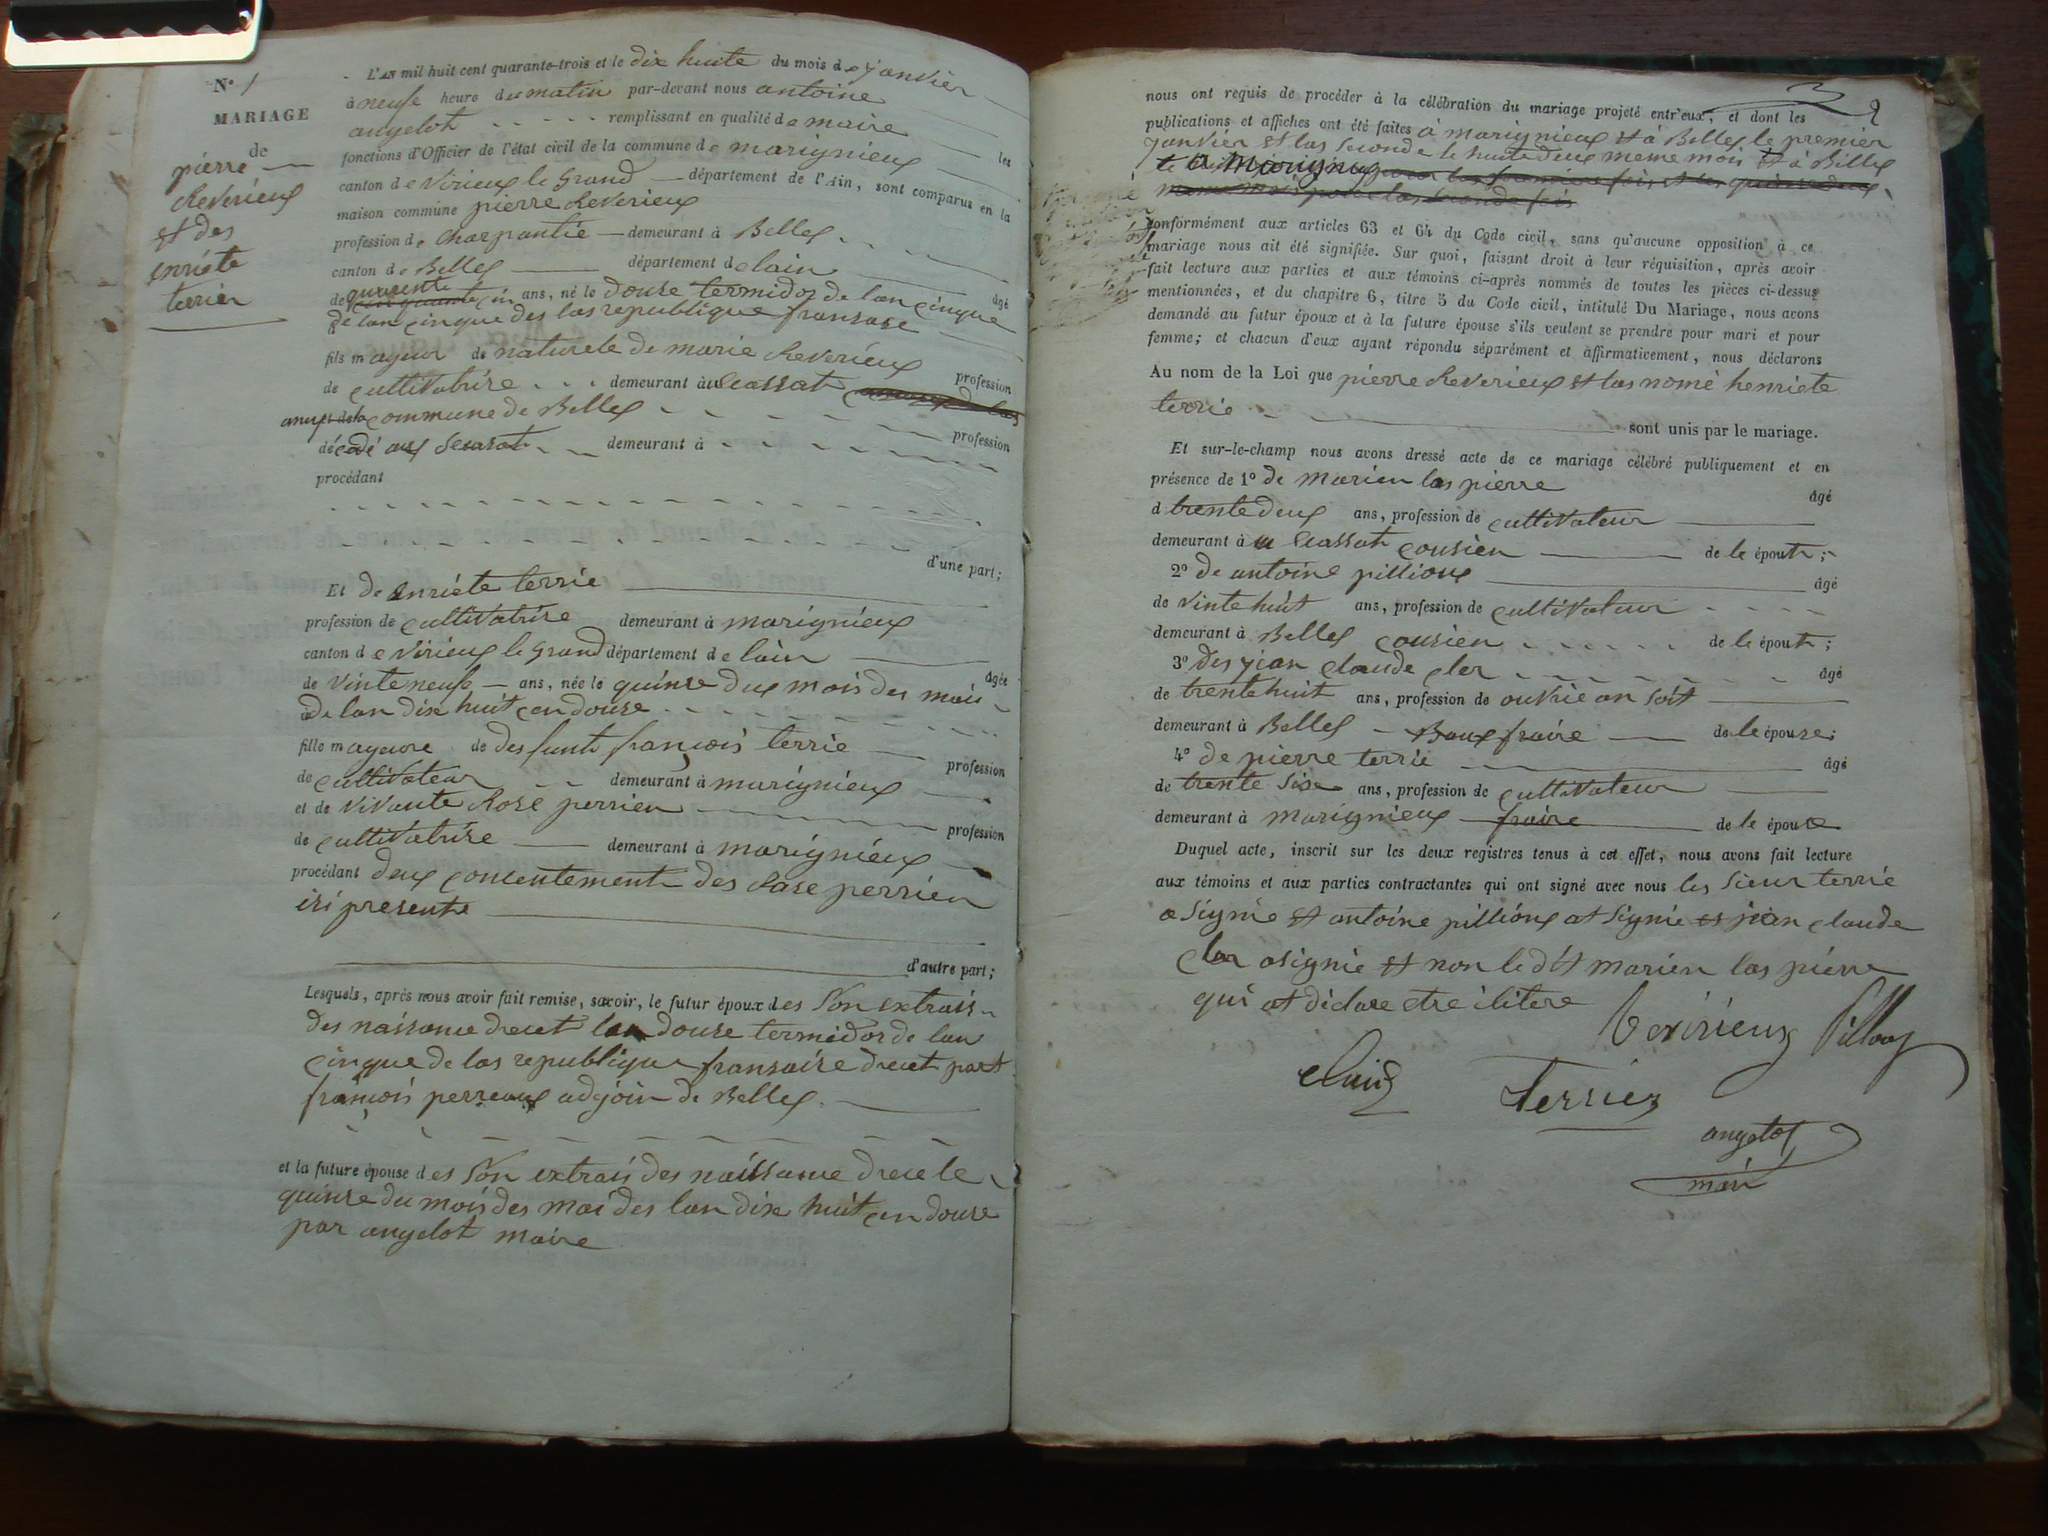 N° 1
MARIAGE
de
pierre
Reverieux
et des
enriete
terrier
L'AN mil huit cent quarante-trois et le dix huite du mois de janvier
à neufe heure du matin par-devant nous antoine
angelot remplissant en qualité de maire les
fonctions d'Officier de l'état civil de la commune de marignieux
canton de Virieux le Grand département de l'Ain, sont comparus en la
maison commune pierre Reverieux
profession de charpantié demeurant à Belley
canton de Belley département de lain âgé
de quarente cin ans, né le douse termidor de lan cinque
de lan cinque des las republique fransase
fils mayeur de naturele de marie Reverieux profession
de cultivatrise demeurant à
commune de Belley profession
décédé demeurant à
procédant
d'une part;
Et de enriete terrie
profession de cultivatrise demeurant à marignieux
canton de Virieux le Grand département de lain âgée
de vinte neufe ans, née le quinse dux mois des mais
de lan dix huit cen douse
fille mayeure de desfunt françois terrie profession
de cultivateur demeurant à marignieux
et de vivante Rose perrien profession
de cultivatrise demeurant à marignieux
procédant dux concentement des Rase perrien
isi presente
d'autre part;
Lesquels, après nous avoir fait remise, savoir, le futur époux des son extrais
des naissance dreuet lan douse termidor de lan
cinque de las republique fransaise dreuet part
françois perreaux adjoin de Belley
et la future épouse des son extrais des naissance dreue le
quinse du mois des mai des lan dix huit cen douse
par angelot maire
nous ont requis de procéder à la célébration du mariage projeté entr'eux, et dont les
publications et affiches ont été faites à marignieux et à Belley le premier
janvier et las seconde le huite dux meme mois et à Belley
conformément aux articles 63 et 64 du Code civil, sans qu'aucune opposition à ce
mariage nous ait été signifiée. Sur quoi, faisant droit à leur réquisition, après avoir
fait lecture aux parties et aux témoins ci-après nommés de toutes les pièces ci-dessus
mentionnées, et du chapitre 6, titre 5 du Code civil, intitulé Du Mariage, nous avons
demandé au futur époux et à la future épouse s'ils veulent se prendre pour mari et pour
femme; et chacun d'eux ayant répondu séparément et affirmativement, nous déclarons
Au nom de la Loi que pierre Reverieux et las nomé henriete
terrie sont unis par le mariage.
Et sur-le-champ nous avons dressé acte de ce mariage célébré publiquement et en
présence de 1° de marien las pierre âgé
d trente deux ans, profession de cultivateur
demeurant à cousien de le épout;
2° de antoine pillioux âgé
de vinte huit ans, profession de cultivateur
demeurant à Belley cousien de le épout;
3° des jean claude cler âgé
de trente huit ans, profession de ouvrie an soit
demeurant à Belley Baux fraire de le épouse;
4° de pierre terrié âgé
de trente sise ans, profession de cultivateur
demeurant à marignieux fraire de le épouse
Duquel acte, inscrit sur les deux registres tenus à cet effet, nous avons fait lecture
aux témoins et aux parties contractantes qui ont signé avec nous les sieur terrié
a signie et antoine pillioux at signie et jean claude
cler asignie et non le dit marien las pierre
qui at diclare etre ilitere
Pilloux
Terrier
angelot
mair